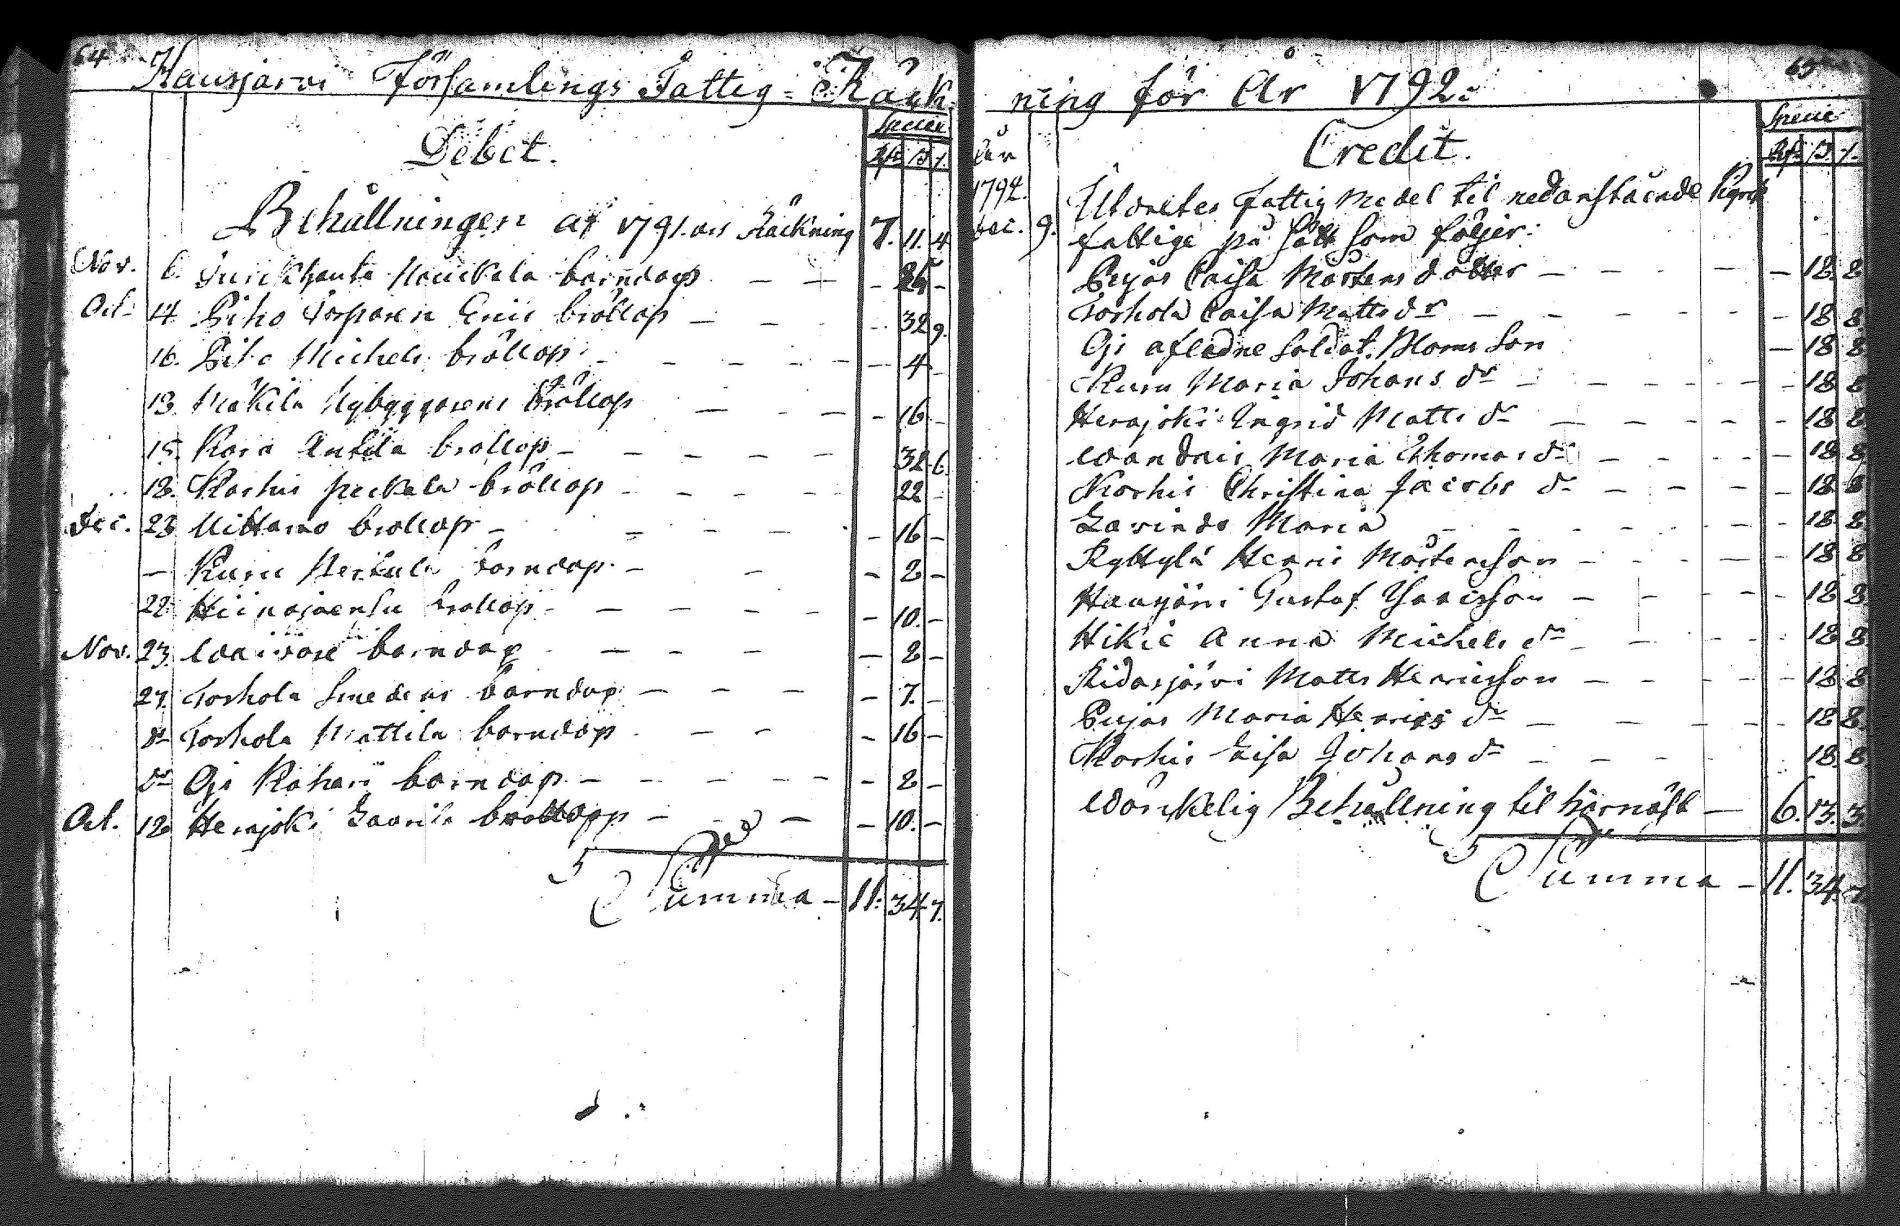 64
Hausjärvi Församlings Fattig-Räck-
Debet.
Specie
Rd. ß. r.
Behållningen af 1791. ars Räckning 7. 11. 4
Nov. 6. Hauckala barndop - - - 26 -
Oct. 14. Piho Torparen Erics bröllop - - - 32 9.
16. Piho Michels bröllop - - - 4 -
13. Mäkilä Nybyggarens Bröllop - - - 16 -
15. Kara Anttila bröllop - - - 32 6.
18. Karhis Peckala bröllop - - - 22 -
Dec. 28 Mittamo bröllop - - - 16 -
- Kuru Heikula barndop - - - 2 -
28 Hiinajoensu bröllop - - - 10. -
Nov. 23. barndop - - - 2 -
27. Torhola Smedens barndop - - - 7. -
dr Torhola Mattila barndop - - - 16 -
dr Oji barndop - - - 2 -
Oct. 12. Herajoki Gavrila bröllopp - - - 10. -
Summa - 11. 34 7.
65
ning för År 1792.
Credit.
Specie
Rd. ß. r.
År
1792.
Dec. 9. Utdeeltes Fattig Medel til nedanstående
fattige på sätt som följer:
Pujas Caisa Mårtens dotter - - - 18 8
Torhola Caisa Matts dr - - - 18 8
Oji afledne Soldat. Bloms Son - 18 8
Kuru Maria Johans dr - - - 18 8
Herajoki Ingrid Matts dr - - - 18 8
Maria Thomas dr - - - 18 8
Karhis Christina Jacobs dr - - - 18 8
Maria - - - 18 8
Ryttylä Henric Mårtensson - - - 18 8
Hausjärvi Gustaf Isacsson - - - 18 8
Hikiä Anna Michels dr - - - 18 8
Ridasjärvi Matts Henricsson - - - 18 8
Pujas Maria Henrics dr - - - 18 8
Karhis Caisa Johans dr - - - 18 8
Wärckelig Behållning til härnäst - 6. 13. 3
Summa - 11. 34. 7